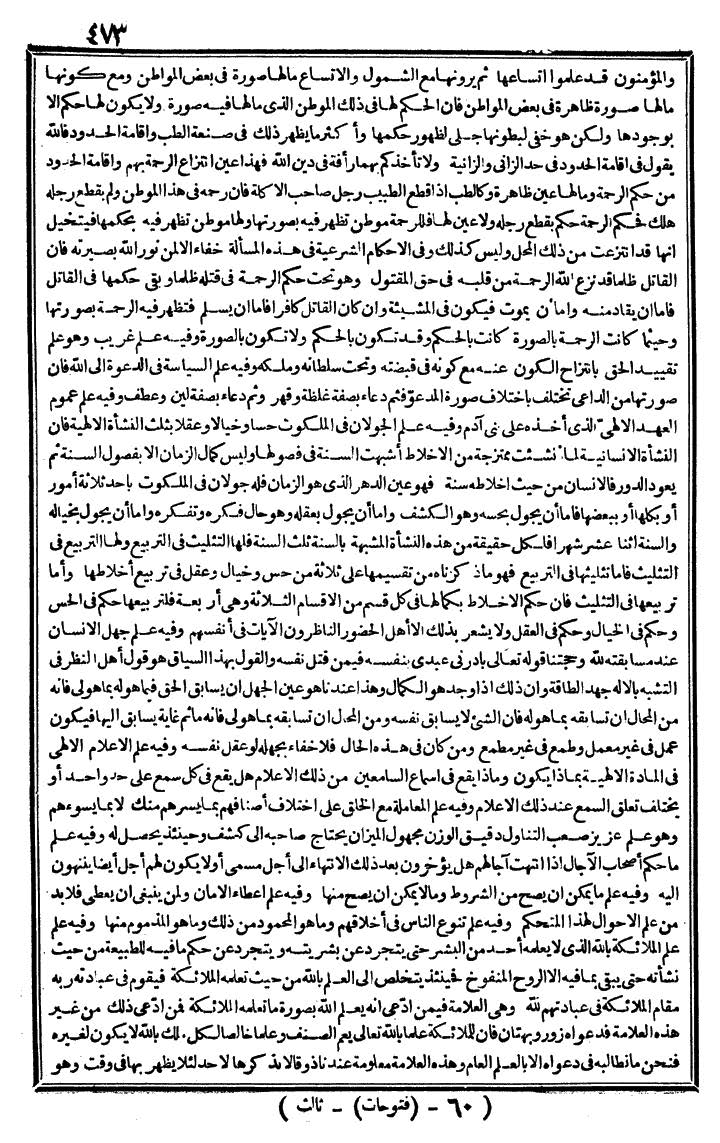 ٤٧٣
والمؤمنون قد علموا اتساعها ثم يرونها مع الشمول والاتساع مالها صورة فى بعض المواطن ومع كونها
مالها صورة ظاهرة فى بعض المواطن فان الحكم لها فى ذلك الموطن الذى مالها فيه صورة ولا يكون لها حكم الا
بوجودها ولكن هو خفى لبطونها جلى لظهور حكمها وأكثر ما يظهر ذلك فى صنعة الطب واقامة الحدود فالله
يقول فى اقامة الحدود فى حد الزانى والزانية ولا تأخذكم بهما رأفة فى دين الله فهذا عين انتزاع الرحمة بهم واقامة الحدود
من حكم الرحمة وما لها عين ظاهرة وكالطب اذا قطع الطبيب رجل صاحب الاكلة فان رحمه فى هذا الموطن ولم يقطع رجله
هلك فحكم الرحمة حكم بقطع رجله ولا عين لها فللرحمة موطن تظهر فيه بصورتها ولها موطن تظهر فيه بحكمها فيتخيل
انها قد انتزعت من ذلك المحل وليس كذلك وفى الاحكام الشرعية فى هذه المسألة خفاء الا لمن نور الله بصيرته فان
القاتل ظلما قد نزع الله الرحمة من قلبه فى حق المقتول وهو تحت حكم الرحمة فى قتله ظلما وبقى حكمها فى القاتل
فاما ان يقاد منه واما أن يموت فيكون فى المشيئة وان كان القاتل كافرا فاما ان يسلم فتظهر فيه الرحمة بصورتها
وحيثما كانت الرحمة بالصورة كانت بالحكم وقد تكون بالحكم ولا تكون بالصورة وفيه علم غريب وهو علم
تقييد الحق بانتزاح الكون عنه مع كونه فى قبضته وتحت سلطانه وملكه وفيه علم السياسة فى الدعوة الى الله فان
صورتها من الداعى تختلف باختلاف صورة المدعو فثم دعاء بصفة غلظة وقهر وثم دعاء بصفة لين وعطف وفيه علم عموم
العهد الالهى الذى أخذه على بنى آدم وفيه علم الجولان فى الملكوت حسا وخيالا وعقلا بثلث النشأة الالهية فان
النشأة الانسانية لما نشئت ممتزجة من الاخلاط أشبهت السنة فى فصولها وليس كمال الزمان الا بفصول السنة ثم
يعود الدور فالانسان من حيث اخلاطه سنة فهو عين الدهر الذى هو الزمان فله جولان فى الملكوت باحد ثلاثة أمور
أو بكلها أو ببعضها فاما أن يجول بحسه وهو الكشف واما أن يجول بعقله وهو حال فكره وتفكره واما أن يجول بخياله
والسنة اثنا عشر شهرا فلكل حقيقة من هذه النشأة المشبهة بالسنة ثلث السنة فلها التثليث فى التربيع ولها التربيع فى
التثليث فاما تثليثها فى التربيع فهو ما ذكرناه من تقسيمها على ثلاثة من حس وخيال وعقل فى تربيع أخلاطها وأما
تربيعها فى التثليث فان حكم الاخلاط بكمالها فى كل قسم من الاقسام الثلاثة وهى أربعة فلتربيعها حكم فى الحس
وحكم فى الخيال وحكم فى العقل ولا يشعر بذلك الا أهل الحضور الناظرون الآيات فى أنفسهم وفيه علم جهل الانسان
عند مسابقته لله وحجتنا قوله تعالى بادرنى عبدى بنفسه فيمن قتل نفسه والقول بهذا السياق هو قول أهل النظر فى
التشبه بالاله جهد الطاقة وان ذلك اذا وجد هو الكمال وهذا عندنا هو عين الجهل ان يسابق الحق فيما هو له بما هو لى فانه
من المحال ان تسابقه بما هو له فان الشئ لا يسابق نفسه ومن المحال ان تسابقه بما هو لى فانه ما ثم غاية يسابق اليها فيكون
عمل فى غير معمل وطمع فى غير مطمع ومن كان فى هذه الحال فلا خفاء بجهله لو عقل نفسه وفيه علم الاعلام الالهى
فى المادة الالهية بماذا يكون وماذا يقع فى اسماع السامعين من ذلك الاعلام هل يقع فى كل سمع على حد واحد أو
يختلف تعلق السمع عند ذلك الاعلام وفيه علم المعاملة مع الخلق على اختلاف أصنافهم بما يسرهم منك لا بما يسوءهم
وهو علم عزيز صعب التناول دقيق الوزن مجهول الميزان يحتاج صاحبه الى كشف وحينئذ يحصل له وفيه علم
ما حكم أصحاب الآجال اذا انتهت آجالهم هل يؤخرون بعد ذلك الانتهاء الى أجل مسمى أو لا يكون لهم أجل أيضا ينتهون
اليه وفيه علم ما يمكن ان يصح من الشروط وما لا يمكن ان يصح منها وفيه علم اعطاء الامان ولمن ينبغى ان يعطى فلا بد
من علم الاحوال لهذا المتحكم وفيه علم تنوع الناس فى أخلاقهم وما هو المحمود من ذلك وما هو المذموم منها وفيه علم
علم الملائكة بالله الذى لا يعلمه أحد من البشر حتى يتجرد عن بشريته ويتجرد عن حكم ما فيه للطبيعة من حيث
نشأته حتى يبقى بما فيه الا الروح المنفوخ فحينئذ يتخلص الى العلم بالله من حيث تعلمه الملائكة فيقوم فى عبادته ربه
مقام الملائكة فى عبادتهم لله وهى العلامة فيمن ادعى انه يعلم الله بصورة ما تعلمه الملائكة فمن ادعى ذلك من غير
هذه العلامة فدعواه زور وبهتان فان للملائكة علما بالله تعالى يعم الصنف وعلما خاصا لكل ملك بالله لا يكون لغيره
فنحن ما نطالبه فى دعواه الا بالعلم العام وهذه العلامة معلومة عندنا ذوقا لا نذكرها لاحد لئلا يظهر بها فى وقت وهو
( ٦٠ - (فتوحات) - ثالث )